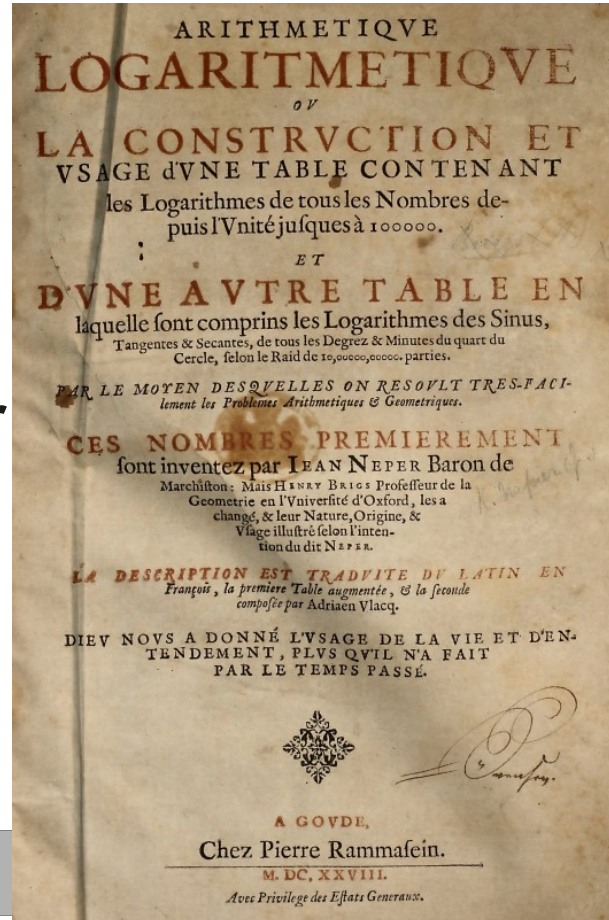 ARITHMETIQVE
LOGARITMETIQVE
OV
LA CONSTRVCTION ET
VSAGE dVNE TABLE CONTENANT
les Logarithmes de tous les Nombres de-
puis l'Vnité juſques à 100000.
ET
D'VNE AVTRE TABLE EN
laquelle ſont comprins les Logarithmes des Sinus,
Tangentes & Secantes, de tous les Degrez & Minutes du quart du
Cercle, ſelon le Raid de 10,00000,00000. parties.
PAR LE MOYEN DESQVELLES ON RESOVLT TRES-FACI-
lement les Problemes Arithmetiques & Geometriques.
CES NOMBRES PREMIEREMENT
ſont inventez par IEAN NEPER Baron de
Marchiſton: Mais HENRY BRIGS Profeſſeur de la
Geometrie en l'Vniverſité d'Oxford, les a
changé, & leur Nature, Origine, &
Vſage illuſtré ſelon l'inten-
tion du dit NEPER.
LA DESCRIPTION EST TRADVITE DV LATIN EN
François, la premiere Table augmentée, & la ſeconde
compoſée par Adriaen Vlacq.
DIEV NOVS A DONNÉ L'VSAGE DE LA VIE ET D'EN-
TENDEMENT, PLVS QV'IL N'A FAIT
PAR LE TEMPS PASSÉ.
A GOVDE,
Chez Pierre Rammaſein.
M. DC. XXVIII.
Avec Privilege des Eſtats Generaux.